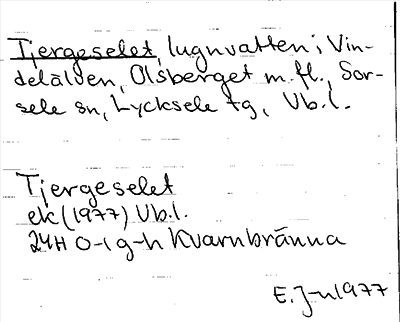 Tjergeselet, lugnvatten i Vin-
delälven, Olsberget m.fl., Sor-
sele sn, Lycksele tg, Vb.l.
Tjergeselet
ek (1977) Vb.l.
24H 0-1 g-h Kvarnbränna
E. J-n 1977